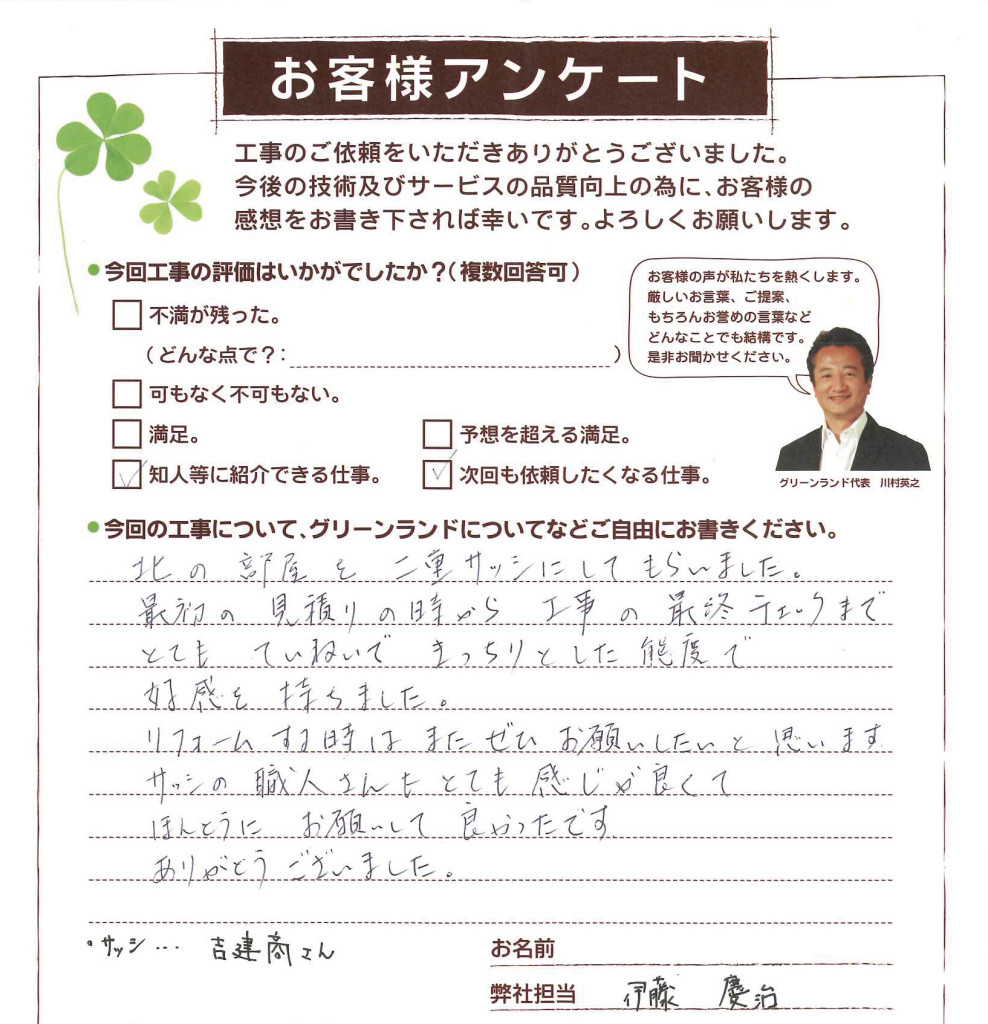 お客様アンケート
工事のご依頼をいただきありがとうございました。
今後の技術及びサービスの品質向上の為に、お客様の
感想をお書き下されば幸いです。よろしくお願いします。
●今回工事の評価はいかがでしたか？（複数回答可）
不満が残った。
（どんな点で？：　）
可もなく不可もない。
満足。
予想を超える満足。
知人等に紹介できる仕事。
次回も依頼したくなる仕事。
お客様の声が私たちを熱くします。
厳しいお言葉、ご提案、
もちろんお誉めの言葉など
どんなことでも結構です。
是非お聞かせください。
グリーンランド代表　川村英之
●今回の工事について、グリーンランドについてなどご自由にお書きください。
北の部屋を二重サッシにしてもらいました。
最初の見積りの時から工事の最終チェックまで
とてもていねいできっちりとした態度で
好感を持ちました。
リフォームする時はまたぜひお願いしたいと思います
サッシの職人さんもとても感じが良くて
ほんとうにお願いして良かったです
ありがとうございました。
・サッシ… 吉建商さん
お名前
弊社担当　伊藤　慶治